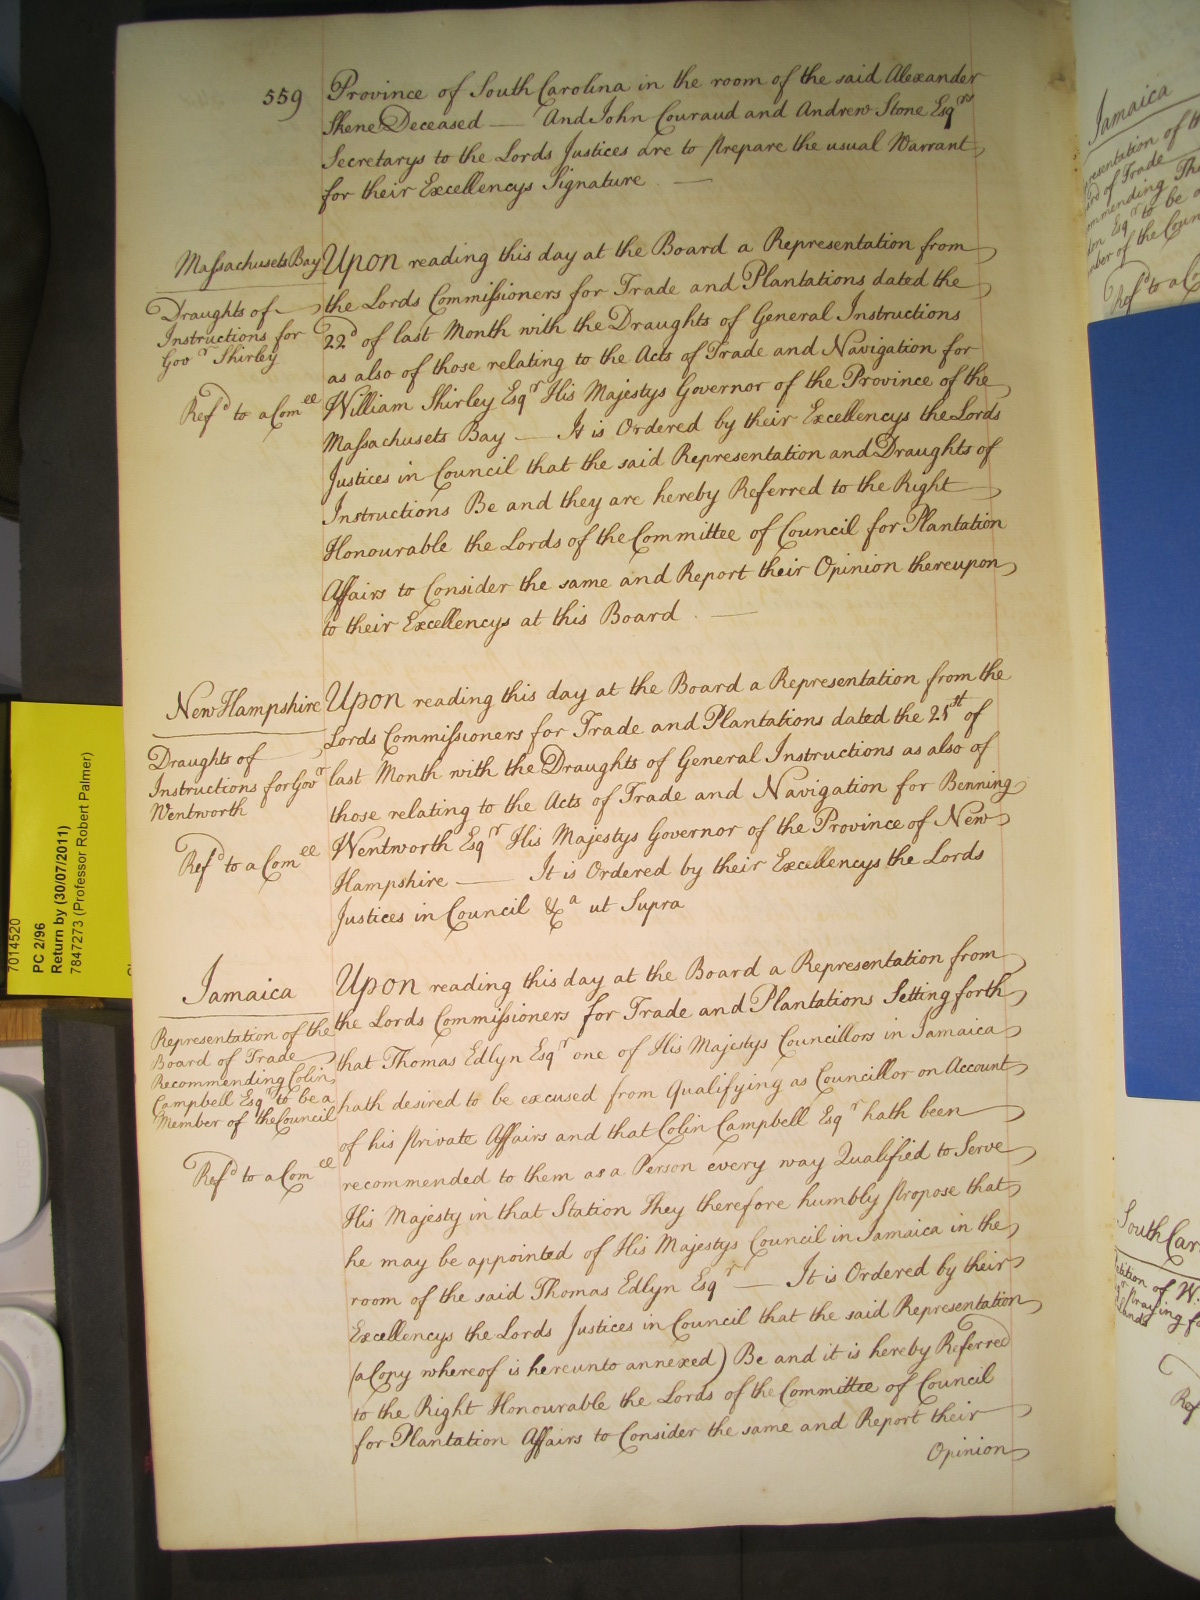 559
Province of South Carolina in the room of the said Alexander
Skene Deceased — And John Couraud and Andrew Stone Esqrs
Secretarys to the Lords Justices are to prepare the usual Warrant
for their Excellencys Signature —
Massachusets Bay
Draughts of
Instructions for
Govr Shirley
Refd to a Comee
Upon reading this day at the Board a Representation from
the Lords Commissioners for Trade and Plantations dated the
22d of last Month with the Draughts of General Instructions
as also of those relating to the Acts of Trade and Navigation for
William Shirley Esqr His Majestys Governor of the Province of the
Massachusets Bay — It is Ordered by their Excellencys the Lords
Justices in Council that the said Representation and Draughts of
Instructions Be and they are hereby Referred to the Right
Honourable the Lords of the Committee of Council for Plantation
Affairs to Consider the same and Report their Opinion thereupon
to their Excellencys at this Board —
New Hampshire
Draughts of
Instructions for Govr
Wentworth
Refd to a Comee
Upon reading this day at the Board a Representation from the
Lords Commissioners for Trade and Plantations dated the 25th of
last Month with the Draughts of General Instructions as also of
those relating to the Acts of Trade and Navigation for Benning
Wentworth Esqr His Majestys Governor of the Province of New
Hampshire — It is Ordered by their Excellencys the Lords
Justices in Council &ca ut Supra
Jamaica
Representation of the
Board of Trade
Recommending Colin
Campbell Esqr to be a
Member of the Council
Refd to a Comee
Upon reading this day at the Board a Representation from
the Lords Commissioners for Trade and Plantations Setting forth
that Thomas Edlyn Esqr one of His Majestys Councillors in Jamaica
hath desired to be excused from Qualifying as Councillor on Account
of his private Affairs and that Colin Campbell Esqr hath been
recommended to them as a Person every way Qualified to Serve
His Majesty in that Station They therefore humbly propose that
he may be appointed of His Majestys Council in Jamaica in the
room of the said Thomas Edlyn Esqr — It is Ordered by their
Excellencys the Lords Justices in Council that the said Representation
(a Copy whereof is hereunto annexed) Be and it is hereby Referred
to the Right Honourable the Lords of the Committee of Council
for Plantation Affairs to Consider the same and Report their
Opinion
7014520
PC 2/96
Return by (30/07/2011)
7847273 (Professor Robert Palmer)
Jamaica
of Trade
Esqr to be a
of the Coun
Refd to a C
South Car
of W.
praying f
Ref